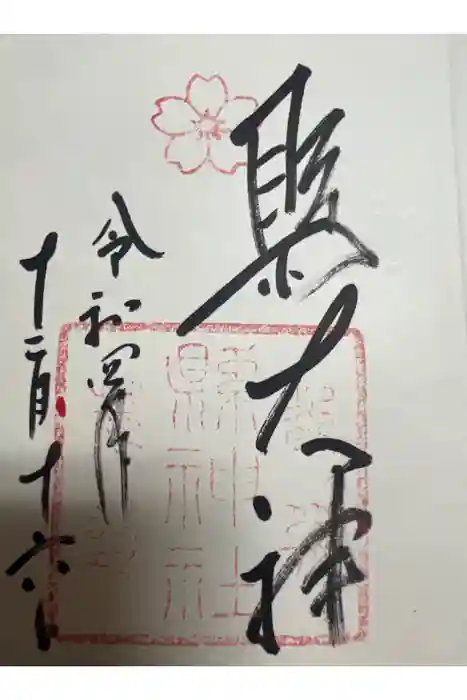 縣大神
縣神社
令和四年
十二月十六日